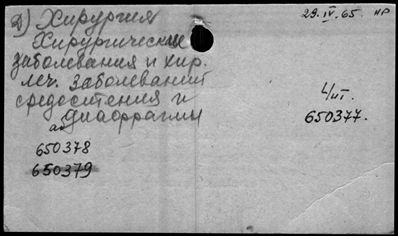 2) Хирургия
29.IV.65. нр
Хирургические
заболевания и хир.
леч. заболеваний
средостения и
диафрагмы
650377.
650378
650379